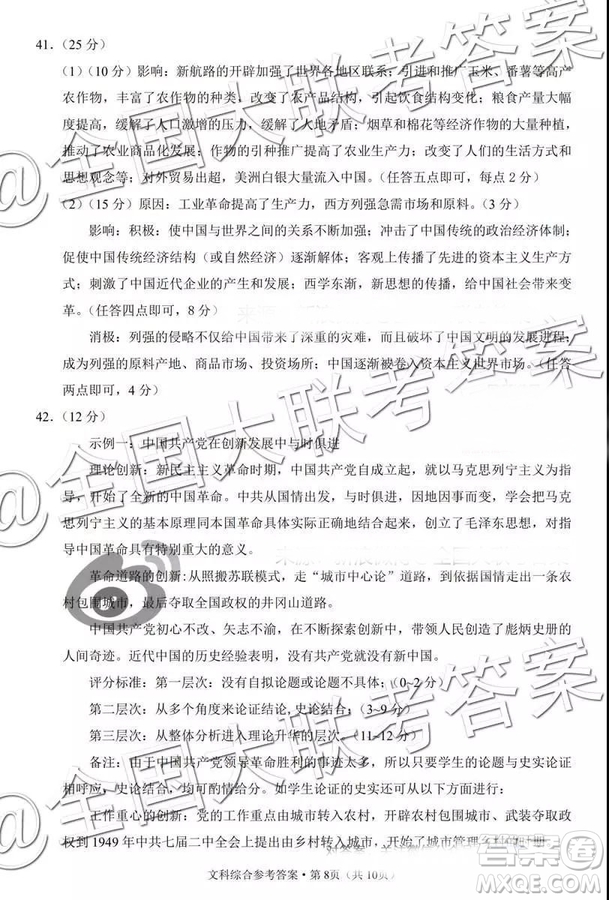 41．（25 分）
（1）（10 分）影响：新航路的开辟加强了世界各地区联系；引进和推广玉米、番薯等高产
农作物，丰富了农作物的种类，改变了农产品结构，引起饮食结构变化；粮食产量大幅
度提高，缓解了人口激增的压力，缓解了人地矛盾；烟草和棉花等经济作物的大量种植，
推动了农业商品化发展；作物的引种推广提高了农业生产力；改变了人们的生活方式和
思想观念等；对外贸易出超，美洲白银大量流入中国。（任答五点即可，每点 2 分）
（2）（15 分）原因：工业革命提高了生产力，西方列强急需市场和原料。（3 分）
影响：积极：使中国与世界之间的关系不断加强；冲击了中国传统的政治经济体制；
促使中国传统经济结构（或自然经济）逐渐解体；客观上传播了先进的资本主义生产方
式；刺激了中国近代企业的产生和发展；西学东渐，新思想的传播，给中国社会带来变
革。（任答四点即可，8 分）
消极：列强的侵略不仅给中国带来了深重的灾难，而且破坏了中国文明的发展进程；
成为列强的原料产地、商品市场、投资场所；中国逐渐被卷入资本主义世界市场。（任答
两点即可，4 分）
42．（12 分）
示例一：中国共产党在创新发展中与时俱进
理论创新：新民主主义革命时期，中国共产党自成立起，就以马克思列宁主义为指
导，开始了全新的中国革命。中共从国情出发，与时俱进，因地因事而变，学会把马克
思列宁主义的基本原理同本国革命具体实际正确地结合起来，创立了毛泽东思想，对指
导中国革命具有特别重大的意义。
革命道路的创新：从照搬苏联模式，走“城市中心论”道路，到依据国情走出一条农
村包围城市，最后夺取全国政权的井冈山道路。
中国共产党初心不改、矢志不渝，在不断探索创新中，带领人民创造了彪炳史册的
人间奇迹。近代中国的历史经验表明，没有共产党就没有新中国。
评分标准：第一层次：没有自拟论题或论题不具体；（0~2 分）
第二层次：从多个角度来论证结论，史论结合；（3~9 分）
第三层次：从整体分析进入理论升华的层次。（11~12 分）
备注：由于中国共产党领导革命胜利的事实丰富，所以只要学生的论题与史实论证
相呼应，史论结合，均可给分。如学生论题史实还可从以下方面展开：
工作重心的创新：工作的重点由城市转入农村，开辟农村包围城市、武装夺取政
权到 1949 年中共七届二中全会上提出由乡村转入城市，开始了城市管理乡村的时期
文科综合参考答案·第 8页（共 10页）
@全国大联考答案
@全国大联考答案
@全国大联考答案